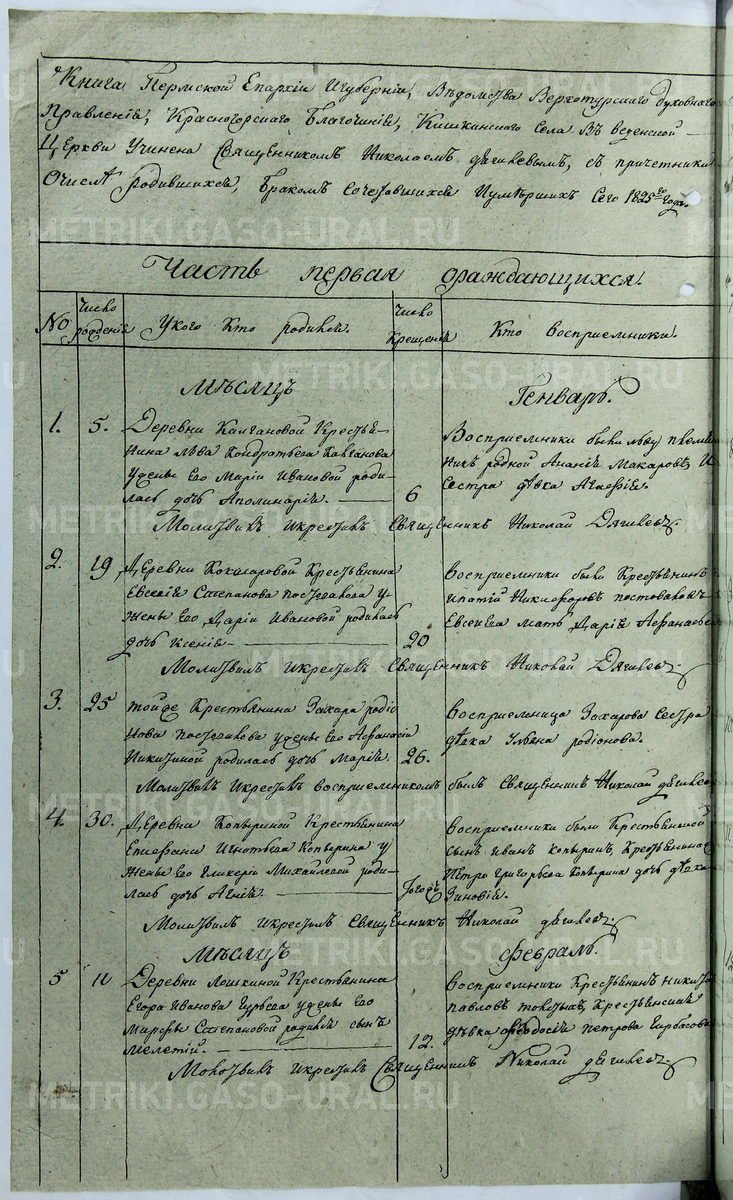 Книга Пермской Епархіи Игуберніи, Вѣдомства Верхотурскаго Духовнаго
Правленія, Красногорскаго Благочинія, Кишкинскаго Села Введенской
Церкви Учинена Священникомъ Николаемъ Дягилевымъ, съ причетники
Очислѣ Родившихся, Бракомъ Сочетавшихся Иумѣршихъ Сего 1825го Года.
Часть первая ораждающихся.
No
Число рожденія
Укого Кто родился.
Число крещенія
Кто восприемники.
Мѣсяцъ Генварь.
1. 5. Деревни Калгановой Кресть-
янина Льва Кондратьева Калганова
Ужены Его Маріи Ивановой роди-
лась дочь Аполинарія. 6
Восприемники были Льву племян
никъ родной Ананій Макаровъ, И
Сестра дѣвка Агафія.
Молитвилъ Икрестилъ Священникъ Николай Дягилевъ.
2. 19 Деревни Кокшаровой Крестьянина
Евсевія Степанова Постникова у
жены Его Даріи Ивановой родилась
дочь Ксенія. 20
Восприемники были Крестьянинъ
Ипатій Никифоровъ постниковъ
Евсеиева мать Дарія Афанасьев
Молитвилъ Икрестилъ Священникъ Николай Дягилевъ.
3. 25 тойже Крестьянина Захара родіо
нова постникова ужены Его Афанасіи
Никитиной родилась дочь Марія. 26.
Восприемница Захарова Сестра
дѣвка Ульяна родіонова.
Молитвилъ Икрестилъ восприемникомъ былъ Священникъ Николай дягилевъ
4. 30. Деревни Копыриной Крестьянина
Епифана Игнатьева Копырина у
Жены Его Гликеріи Михайловой роди-
лась дочь Агнія. тогожъ
Восприемники были Крестьянской
сынъ Иванъ копыринъ, Крестьянина
Петра григорьева Копырина дочь дѣвка
Зиновія.
Молитвилъ Икрестилъ Священникъ Николай дягилевъ.
Мѣсяцъ Февраль.
5 11 Деревни Лошкиной Крестьянина
Егора Иванова Гурьева ужены Его
Марфы Степановой родился сынъ
Мелетій. 12.
Восприемники Крестьянинъ Никита
павловъ Крестьянская
дѣвка Феодосія петрова Горбасова
Молитвилъ Икрестилъ Священникъ Николай дягилевъ.
METRIKI.GASO-URAL.RU